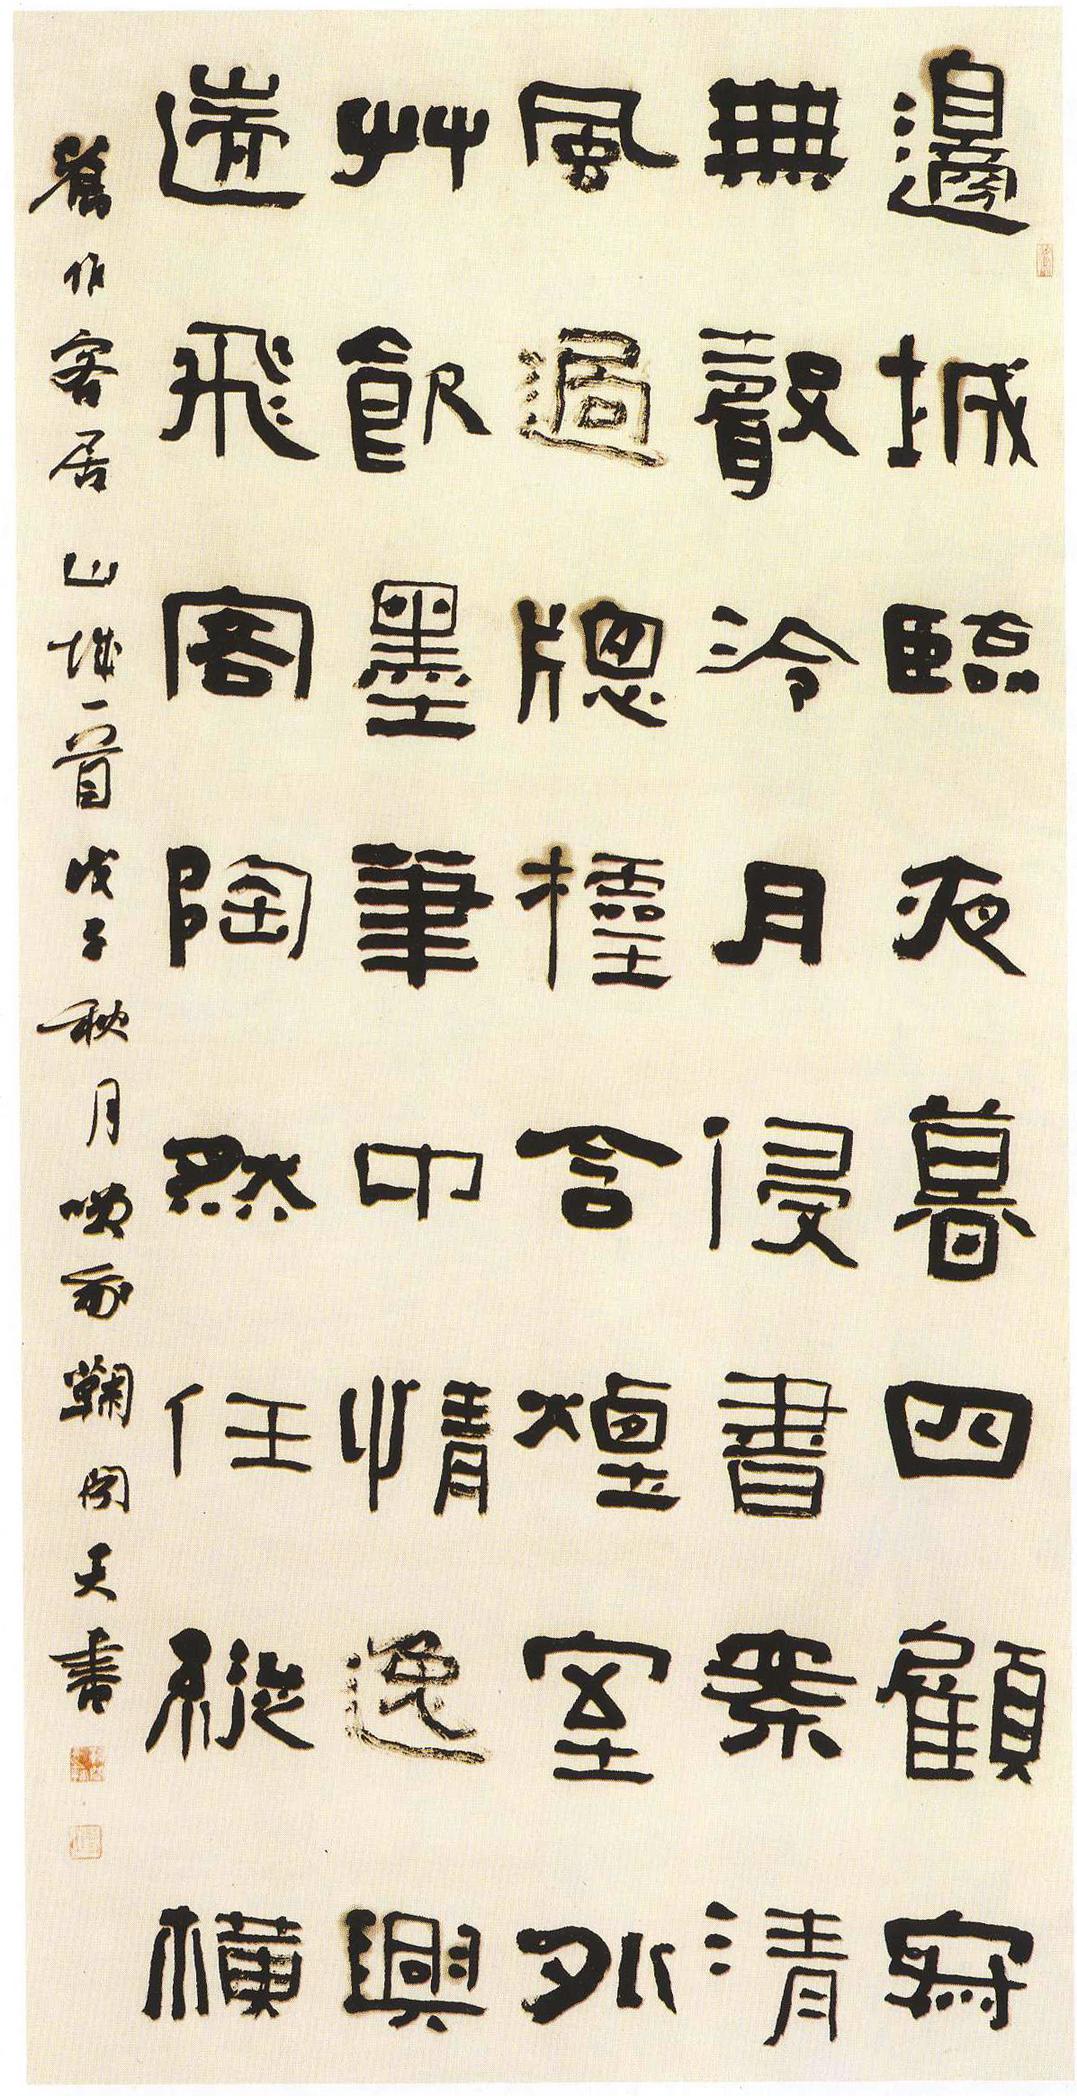 邊城臨夜暮四顧寂
無聲冷月侵書案清
風過牕櫺含煙室外
艸飲墨筆中情逸興
遄飛客陶然任縱橫
舊作客居山城一首戊子秋月鞠闻天書